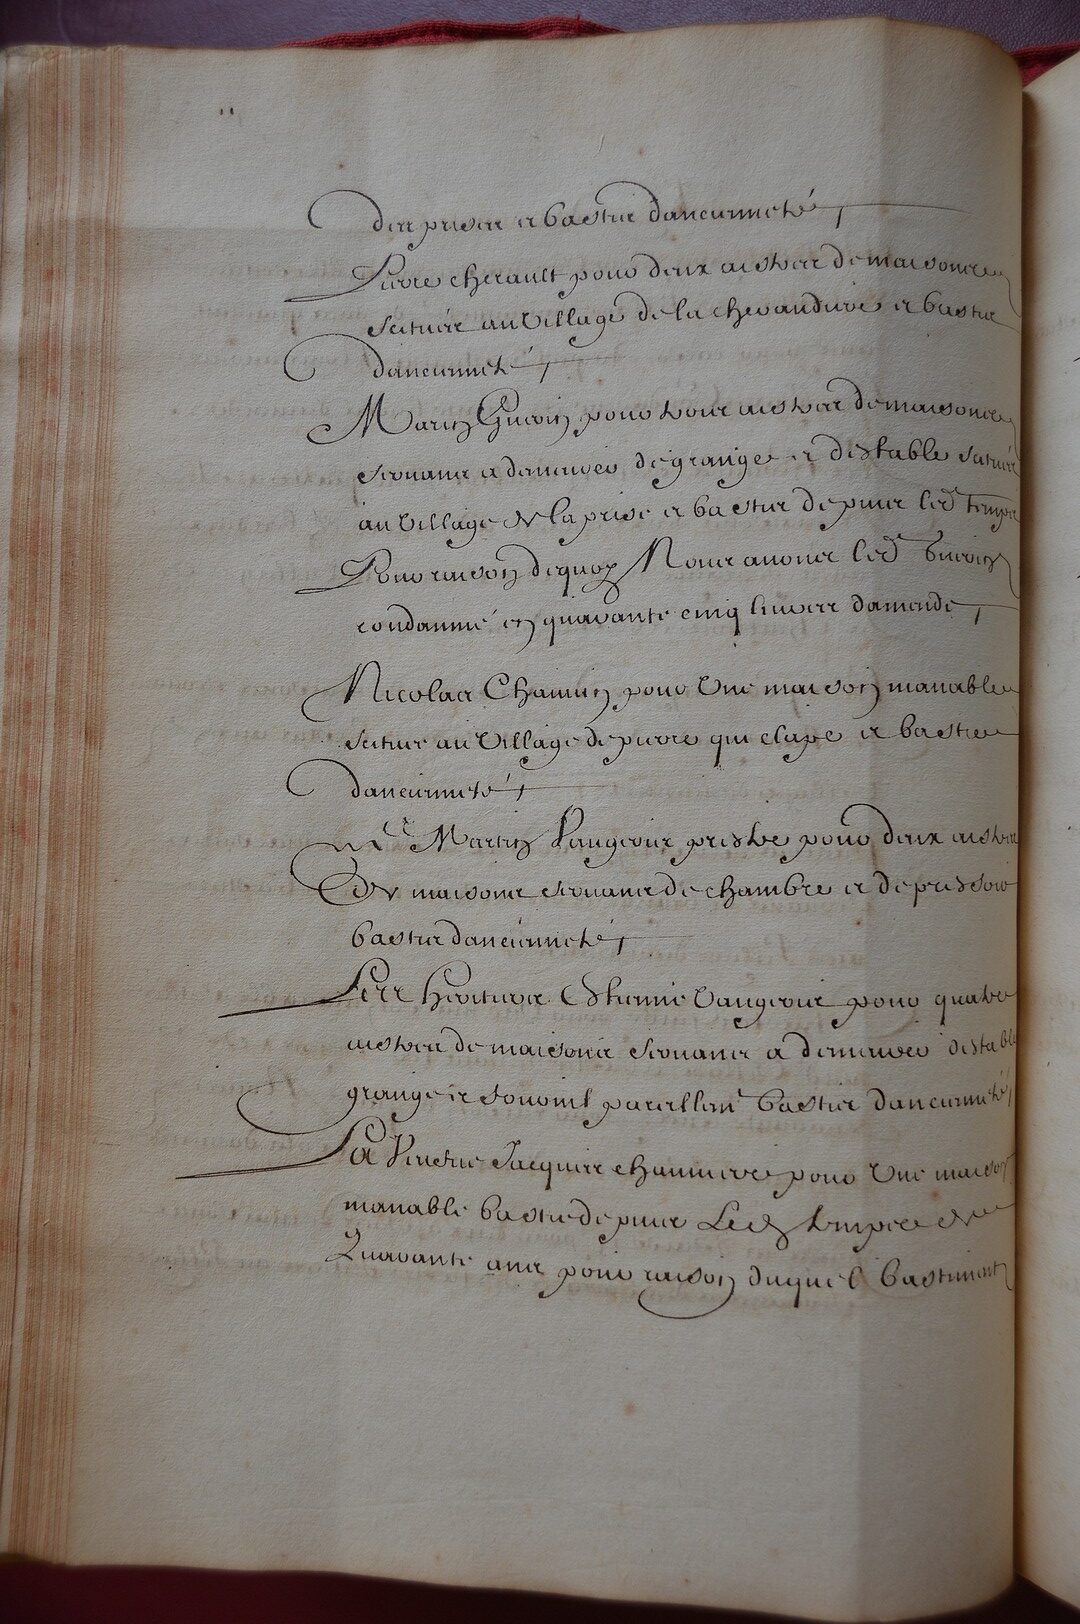 des prises et bastie d'ancienneté
Pierre cherault pour deux aistres de maisons
scituée au village de la chevauduire et bastie
d'ancienneté
Marin Guerin pour trois aistres de maisons
servans a demeurer de grange et d'estable scituées
au village de la prise et bastie depuis led temps
Pour raison de quoy Nous avons led Guerin
condamné en quarante cinq livres d'amende
Nicolas Chamin pour une maison manable
scitue au village de pierre qui et bastie
d'ancienneté
Me Martin Vaugeois prestre pour deux aistres
de maisons servans de chambre et de pressoir
bastie d'ancienneté
Les heritiers Estienne Vaugeois pour quatre
aistres de maisons servans a demeurer d'estable
grange et pareillemt basties d'ancienneté
La Veufve Jacques pour une maison
manable bastie depuis Led temps de
Quarante ans pour raison duquel bastiment